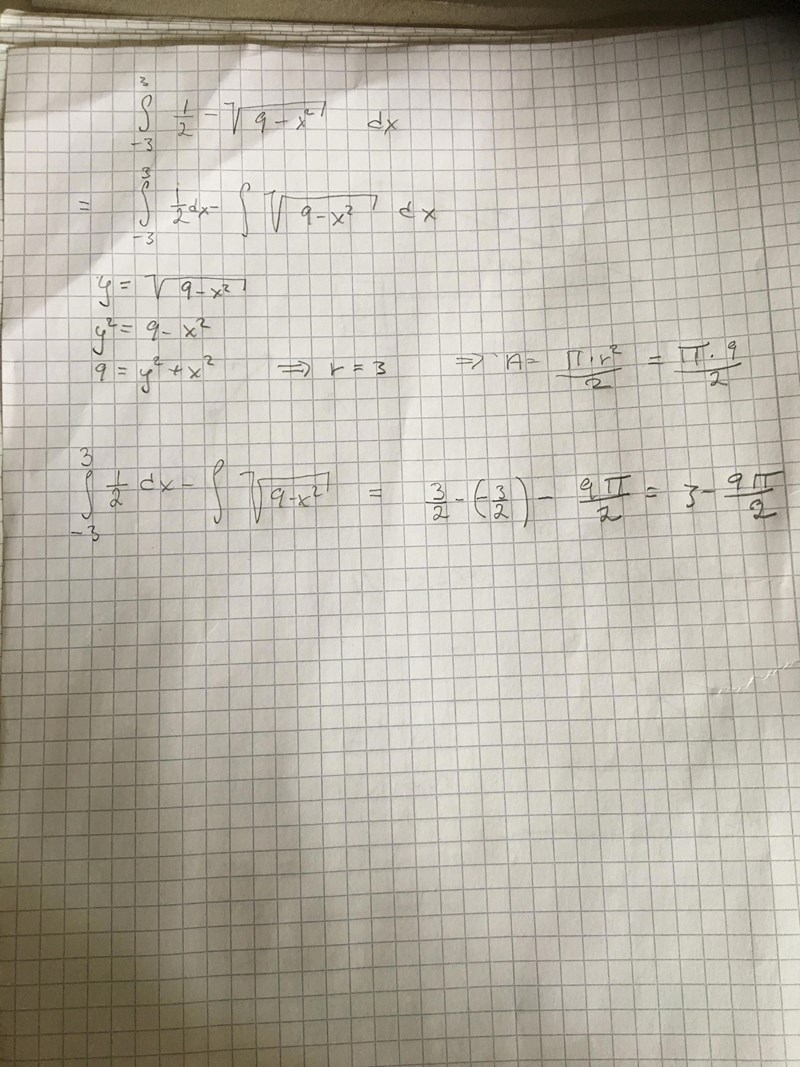 ∫₋₃³ 1/2 − √(9 − x²) dx
= ∫₋₃³ 1/2 dx − ∫ √(9 − x²) dx
y = √(9 − x²)
y² = 9 − x²
9 = y² + x² ⇒ r = 3 ⇒ A = (π · r²)/2 = (π · 9)/2
∫₋₃³ 1/2 dx − ∫ √(9 − x²) = 3/2 − (−3/2) − 9π/2 = 3 − 9π/2